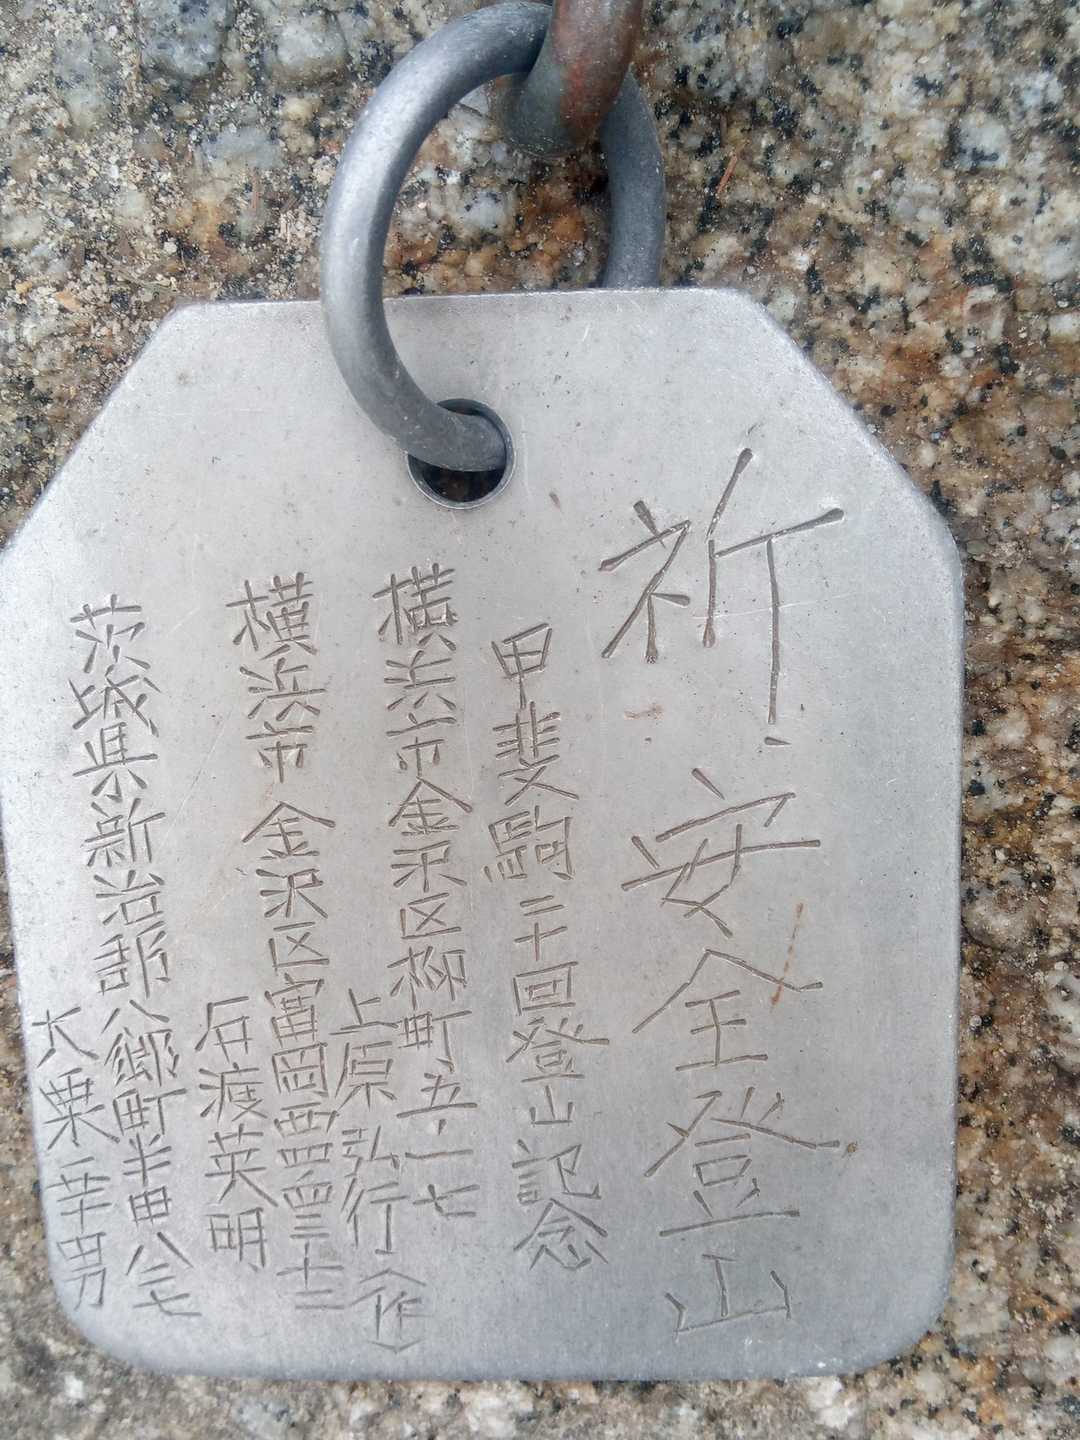 祈安全登山
甲斐駒二十回登山記念
横浜市金沢区柳町五ー一七
上原弘行（作）
横浜市金沢区富岡西四ー三十ー二
石渡英明
茨城県新治郡八郷町半田八三七
大栗幸男